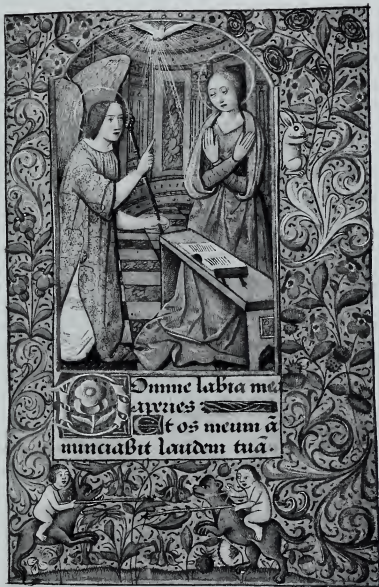 Domine labia mea
aperies
Et os meum ā
nunciabit laudem tuā.